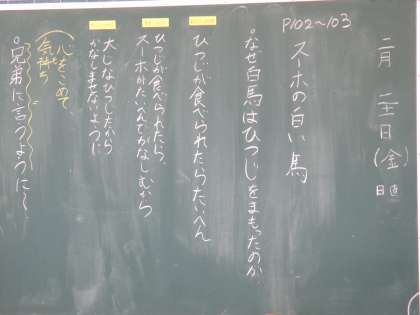 二月二十一日(金)
日直
P102~103
スーホの白い馬
。なぜ白馬はひつじをまもったのか
ひつじが食べられたらたいへん
ひつじが食べられたら、
スーホがたいへんでかなしむから
大じなひつじだから
かなしませないように
(心をこめて
気持ち
。兄弟に言うように~